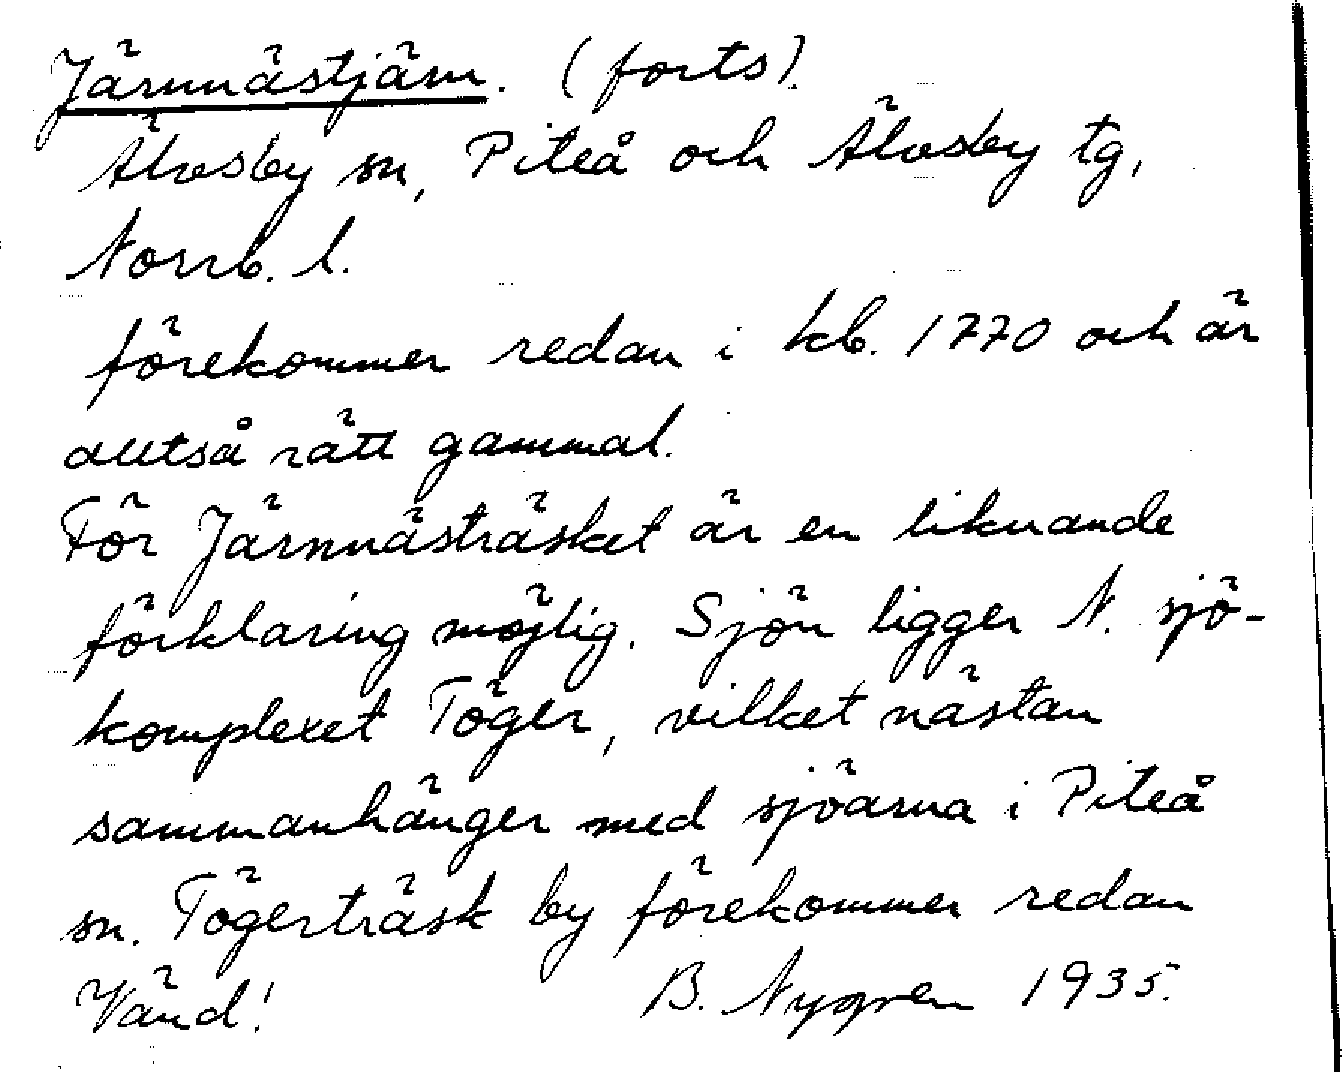 Järnnästjärn. (forts).
Älvsby sn, Piteå och Älvsby tg,
Norrb. l.
förekommer redan i kb. 1770 och är
alltså rätt gammal.
För Järnnästräsket är en liknande
förklaring möjlig. Sjön ligger N. sjö-
komplexet Töger, vilket nästan
sammanhänger med sjöarna i Piteå
sn. Tögerträsk by förekommer redan
Vänd! B. Nygren 1935.